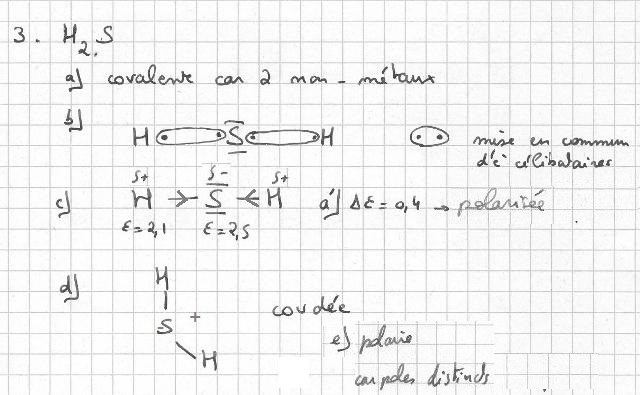 3. H₂S
a) covalente car 2 non-métaux
b) H S H mise en commun
d'é célibataires
δ+ δ- δ+
c) H → S ← H a') ΔE = 0,4 → polarisée
E = 2,1 E = 2,5
d) H
S + coudée
H e) polaire
car poles distincts